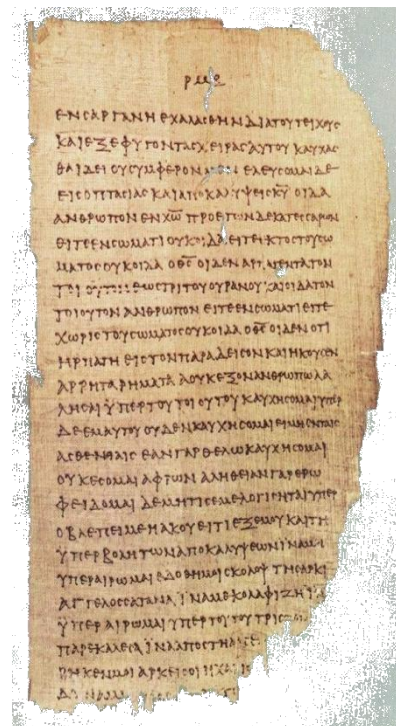 ΕΝϹΑΡΓΑΝΗΕΧΑΛΑϹΘΗΝΔΙΑΤΟΥΤΕΙΧΟΥϹ
ΚΑΙΕΞΕΦΥΓΟΝΤΑϹΧΕΙΡΑϹΑΥΤΟΥΚΑΥΧΑϹ
ΘΑΙΔΕΙΟΥϹΥΜΦΕΡΟΝ ΕΛΕΥϹΟΜΑΙΔΕ
ΕΙϹΟΠΤΑϹΙΑϹΚΑΙΑΠΟΚΑΛΥΨΕΙϹΚ̅Υ̅ΟΙΔΑ
ΑΝΘΡΩΠΟΝΕΝΧ̅Ω̅ΠΡΟΕΤΩΝΔΕΚΑΤΕϹϹΑΡΩΝ
ΕΙΤΕΕΝϹΩΜΑΤΙΟΥΚΟΙΔΑΕΙΤΕΕΚΤΟϹΤΟΥϹΩ
ΜΑΤΟϹΟΥΚΟΙΔΑΟΘ̅Ϲ̅ΟΙΔΕΝΑΡΠΑΓΕΝΤΑΤΟΝ
ΤΟΙΟΥΤΟΝΕΩϹΤΡΙΤΟΥΟΥΡΑΝΟΥΚΑΙΟΙΔΑΤΟΝ
ΤΟΙΟΥΤΟΝΑΝΘΡΩΠΟΝΕΙΤΕΕΝϹΩΜΑΤΙΕΙΤΕ
ΧΩΡΙϹΤΟΥϹΩΜΑΤΟϹΟΥΚΟΙΔΑΟΘ̅Ϲ̅ΟΙΔΕΝΟΤΙ
ΗΡΠΑΓΗΕΙϹΤΟΝΠΑΡΑΔΕΙϹΟΝΚΑΙΗΚΟΥϹΕΝ
ΑΡΡΗΤΑΡΗΜΑΤΑΑΟΥΚΕΞΟΝΑΝΘΡΩΠΩΛΑ
ΛΗϹΑΙΫΠΕΡΤΟΥΤΟΙΟΥΤΟΥΚΑΥΧΗϹΟΜΑΙΫΠΕΡ
ΔΕΕΜΑΥΤΟΥΟΥΔΕΝΚΑΥΧΗϹΟΜΑΙΕΙΜΗΕΝΤΑΙϹ
ΑϹΘΕΝΙΑΙϹΕΑΝΓΑΡΘΕΛΩΚΑΥΧΗϹΟΜΑΙ
ΟΥΚΕϹΟΜΑΙΑΦΡΩΝΑΛΗΘΕΙΑΝΓΑΡΕΡΩ
ΦΕΙΔΟΜΑΙΔΕΜΗΤΙϹΕΜΕΛΟΓΙϹΗΤΑΙΫΠΕΡ
ΟΒΛΕΠΕΙΜΕΗΑΚΟΥΕΙΤΙΕΞΕΜΟΥΚΑΙΤΗ
ΫΠΕΡΒΟΛΗΤΩΝΑΠΟΚΑΛΥΨΕΩΝΪΝΑΜΗ
ΫΠΕΡΑΙΡΩΜΑΙΕΔΟΘΗΜΟΙϹΚΟΛΟΨΤΗϹΑΡΚΙ
ΑΓΓΕΛΟϹϹΑΤΑΝΑΪΝΑΜΕΚΟΛΑΦΙΖΗΪΝΑ
ΫΠΕΡΑΙΡΩΜΑΙΫΠΕΡΤΟΥΤΟΥΤΡΙϹ
ΠΑΡΕΚΑΛΕϹΑΪΝΑΑΠΟϹΤΗ
ΡΗΚΕΝΜΟΙΑΡΚΕΙϹΟΙΗΧΑΡΙϹ
ΔΥΝΑΜΙϹ